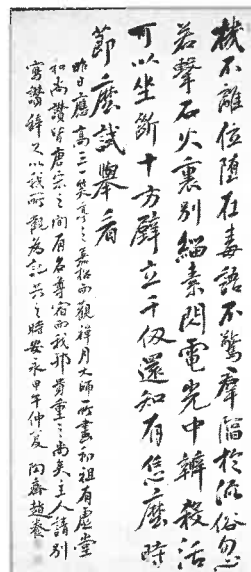 機不離位墮在毒語不驚羣陷於流俗忽
若擊石火裏別緇素閃電光中辨殺活
可以坐斷十方壁立千仞還知有恁麼時
節麼試舉看
昨日應高三一英亭之嘉招而觀禅月大師所畫初祖有虚堂
和尚讃皆唐宗之間有名尊宿而我邦貴重之尚矣主人請別
寫讃辞又以我所觀為記時安永甲午仲夏 陶齋趙養